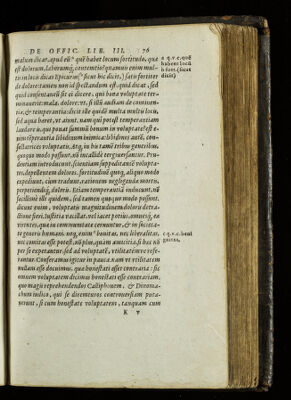 DE OFFIC. LIB. III. 76
malum dicat, apud eũ ᵃ quẽ habet locum fortitudo, quæ
est dolorum, laborumq́; contemtio? quamuis enim mul-
tis in locis dicat Epicurus, ᵇ sicut hic dicit, satis fortiter
de dolore: tamen non id spectandum est, quid dicat, sed
quid consentaneũ sit ei dicere, qui bona voluptate ter-
minauerit: mala, dolore: vt, si illũ audiam de continen-
tia, & temperantia: dicit ille quidẽ multa multis locis,
sed aqua hæret, vt aiunt. nam qui potest temperantiam
laudare is, qui ponat summũ bonum in voluptate? est e-
nim tẽperantia libidinum inimica: libidines autẽ, con-
sectatrices voluptatis. Atq; in his tamẽ tribus generibus,
quoquo modo possunt, nõ incallidè tergiuersantur. Pru-
dentiam introducunt, scientiam suppeditantẽ volupta-
tes, depellentem dolores. fortitudinẽ quoq; aliquo modo
expediunt, cùm tradunt, rationem negligendæ mortis,
perpetiendiq́; doloris. Etiam temperantiã inducunt, nõ
facillimè illi quidem, sed tamen quoquo modo possunt.
dicunt enim, voluptatis magnitudinem doloris detra-
ctione finiri. Iustitia vacillat, vel iacet potius, omnesq́; eæ
virtutes, quæ in communitate cernuntur, & in societa-
te generis humani. neq; enim ᶜ bonitas, nec liberalitas,
nec comitas esse potest, nõ plus, quàm amicitia, si hæc nõ
per se expetantur, sed ad voluptatẽ, vtilitatemve refe-
rantur. Conferamus igitur in pauca. nam vt vtilitatem
nullam esse docuimus, quæ honestati esset contraria: sic
omnem voluptatem dicimus honestati esse contrariam.
quo magis reprehendendos Calliphonem, & Dinoma-
chum iudico, qui se diremturos controuersiam puta-
uerunt, si cum honestate voluptatem, tanquam cum
K v
a q.v.c. quẽ
habent locũ
b sunt. (sicut
dicit)
c q.v.c.